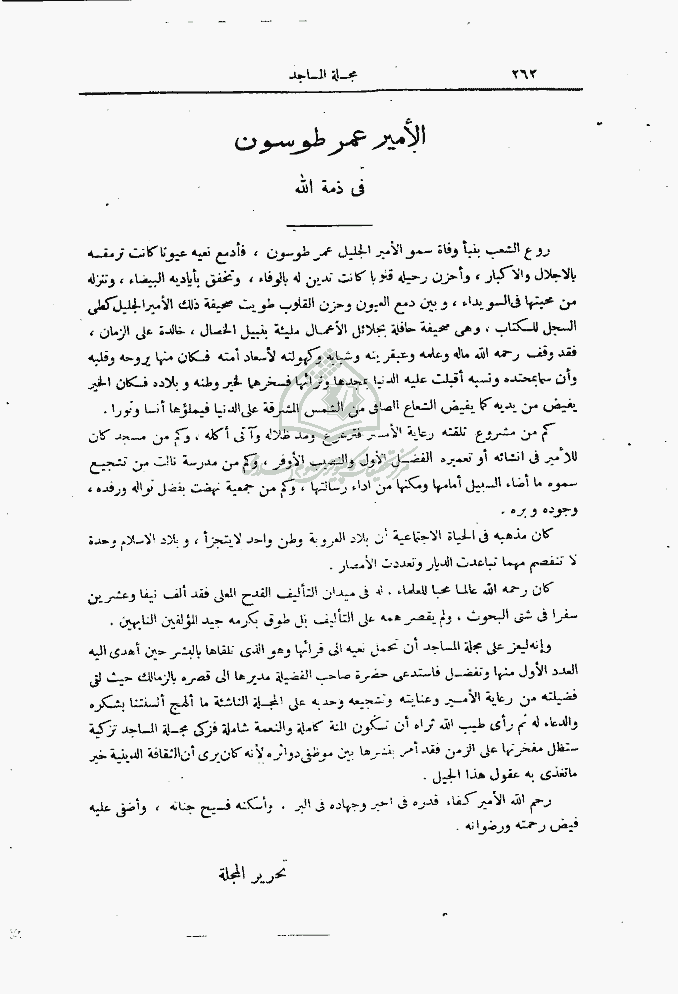 ٢٦٣ مجلة المساجد
الأمير عمر طوسون
فى ذمة الله
روع الشعب بنبأ وفاة سمو الأمير الجليل عمر طوسون ، فأدمع نعيه عيونا كانت ترمقه
بالاجلال والاكبار ، وأحزن رحيله قلوبا كانت تدين له بالوفاء ، وتخفق بأياديه البيضاء ، وتنزله
من محبتها فى السويداء ، و بين دمع العيون وحزن القلوب طويت صحيفة ذلك الأمير الجليل كطى
السجل للكتاب ، وهى صحيفة حافلة بجلائل الأعمال مليئة بنبيل الخصال ، خالدة على الزمان ،
فقد وقف رحمه الله ماله وعلمه وعبقريته وشبابه وكهولته لأسعاد أمته فكان منها بروحه وقلبه
وأن سما بمحتده ونسبه أقبلت عليه الدنيا بمجدها وثرائها فسخرها لخير وطنه و بلاده فكان الخير
يفيض من يديه كما يفيض الشعاع الصافى من الشمس المشرقة على الدنيا فيملؤها أنسا ونورا .
كم من مشروع تلقته رعاية الأمير فترعرع ومد ظلاله وآتى أكله ، وكم من مسجد كان
للأمير فى انشائه أو تعميره الفضل الأول والنصيب الأوفر ، وكم من مدرسة نالت من تشجيع
سموه ما أضاء السبيل أمامها ومكنها من اداء رسالتها ، وكم من جمعية نهضت بفضل نواله ورفده ،
وجوده و بره .
كان مذهبه فى الحياة الاجتماعية أن بلاد العروبة وطن واحد لايتجزأ ، و بلاد الاسلام وحدة
لا تنفصم مهما تباعدت الديار وتعددت الأمصار .
كان رحمه الله عالما محبا للعلماء . له فى ميدان التأليف القدح المعلى فقد ألف نيفا وعشرين
سفرا فى شتى البحوث ، ولم يقصر همه على التأليف بل طوق بكرمه جيد المؤلفين النابهين .
وإنه ليعز على مجلة المساجد أن تحمل نعيه الى قرائها وهو الذى تلقاها بالبشر حين أهدى اليه
العدد الأول منها وتفضل فاستدعى حضرة صاحب الفضيلة مديرها الى قصره بالزمالك حيث لقى
فضيلته من رعاية الأمير وعنايته وتشجيعه وحدبه على المجلة الناشئة ما ألهج ألسنتنا بشكره
والدعاء له ثم رأى طيب الله ثراه أن تكون المنة كاملة والنعمة شاملة فزكى مجلة المساجد تزكية
ستظل مفخرتها على الزمن فقد أمر بنشرها بين موظفى دوائره لأنه كان يرى أن الثقافة الدينية خير
ماتغذى به عقول هذا الجيل .
رحم الله الأمير كفاء قدره فى الخير وجهاده فى البر . وأسكنه فسيح جنانه ، وأضفى عليه
فيض رحمته ورضوانه .
تحرير المجلة